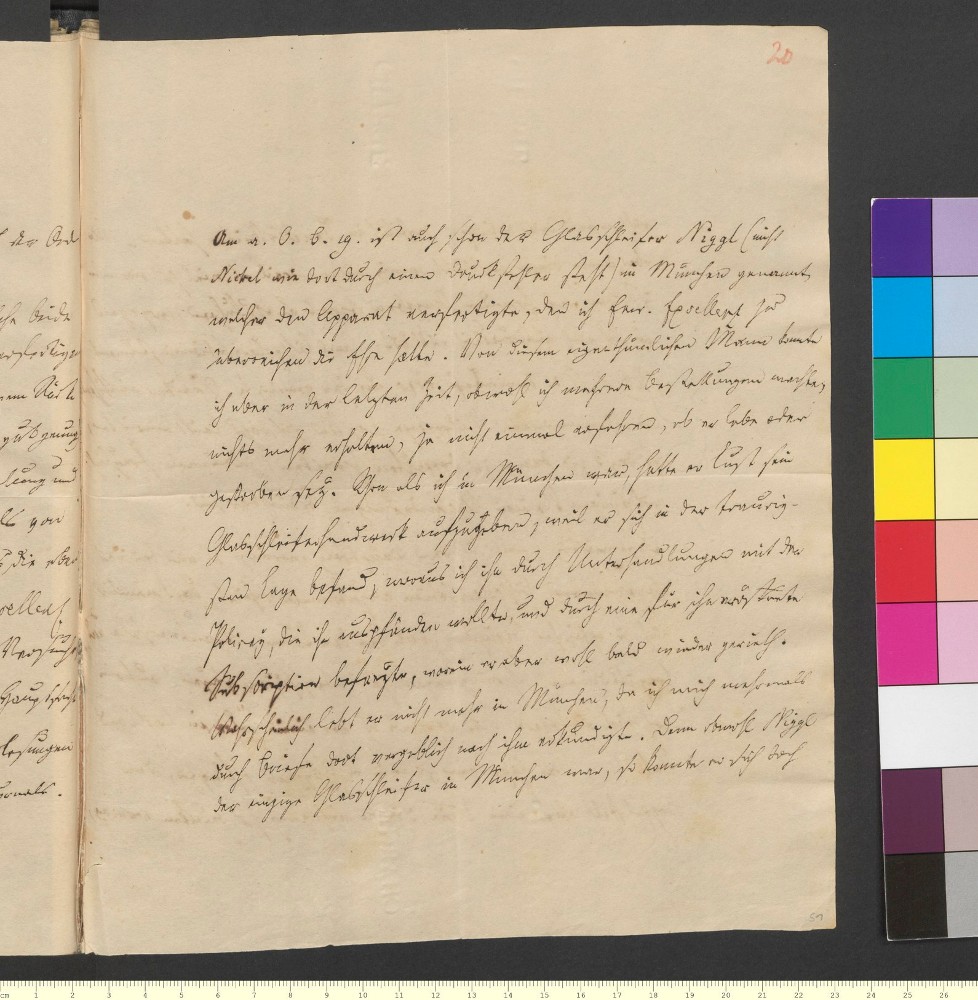 20
Am a. O. B. 19. ist auch schon der Glasschleifer Niggl (nicht
Nickel wie dort durch einen Druckfehler steht) in München genannt,
welcher den Apparat verfertigte, den ich Ewr. Excellenz zu
überreichen die Ehre hatte. Von diesem eigenthümlichen Mann konnte
ich aber in der letzten Zeit, obwohl ich mehrere Bestellungen machte,
nichts mehr erhalten, ja nicht einmal erfahren, ob er lebe oder
gestorben sey. Schon als ich in München war, hatte er Lust sein
Glasschleiferhandwerk aufzugeben, weil er sich in der traurig-
sten Lage befand, woraus ich ihn durch Unterhandlungen mit der
Polizey, die ihn auspfänden wollte, und durch eine für ihn eröffnete
Subscription befreyte, worein er aber wohl bald wieder gerieth.
Wahrscheinlich lebt er nicht mehr in München, da ich mich mehrmals
durch Briefe dort vergeblich nach ihm erkundigte. Denn obwohl Niggl
der einzige Glasschleifer in München war, so konnte er sich doch